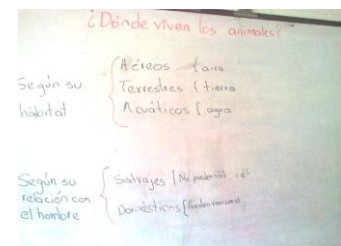 ¿Dónde viven los animales?
Según su
hábitat
Aéreos { aire
Terrestres { tierra
Acuáticos { agua
Según su
relación con
el hombre
Salvajes { No pueden
Domésticos { Pueden